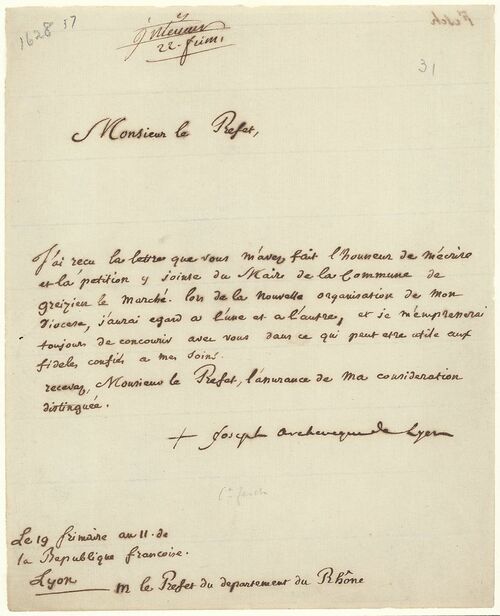 1628 37
22. frim.
Fesch
31
Monsieur le Prefet,
J'ai recu la lettre que vous m'avez fait l'honneur de m'écrire
et la petition y jointe du Maire de la Commune de
greizieu le Marché. lors de la nouvelle organisation de mon
Diocese, j'aurai egard a l'une et a l'autre, et je m'empresserai
toujours de concourir avec vous dans ce qui peut etre utile aux
fideles confiés a mes soins.
recevez, Monsieur le Prefet, l'assurance de ma consideration
distinguée.
+ Joseph Archeveque de Lyon
Cal Fesch
Le 19 frimaire an 11. de
la Republique francoise.
Lyon
m le Prefet du departement du Rhône